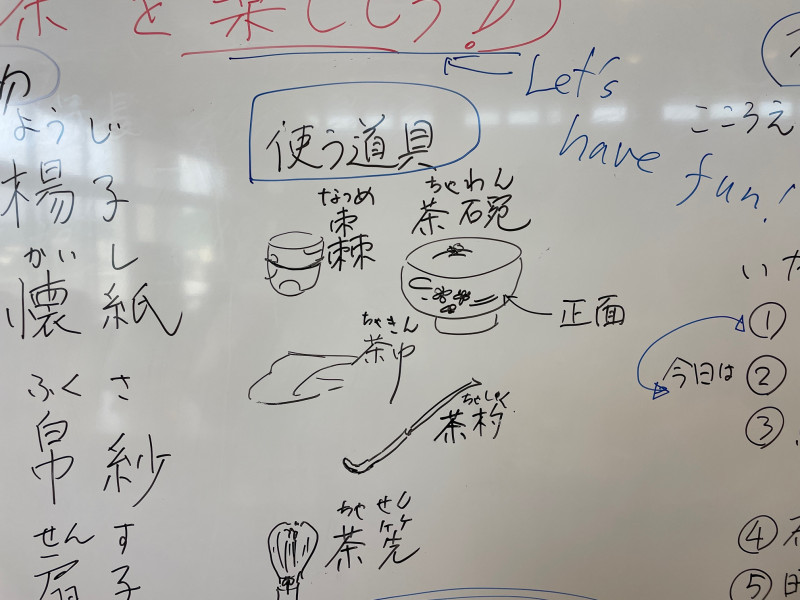 茶を楽しもう♪
Let's
have
fun!
物
ようじ
楊子
かいし
懐紙
ふくさ
帛紗
せんす
扇子
使う道具
なつめ
棗
ちゃわん
茶碗
正面
ちゃきん
茶巾
ちゃしゃく
茶杓
ちゃせん
茶筅
こころえ
いた
①
今日は ②
③
④
⑤